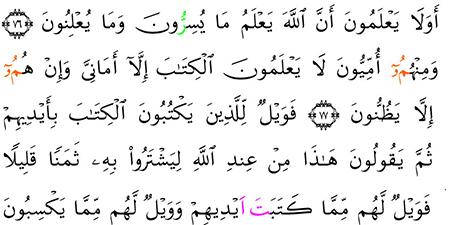 أَوَلَا يَعْلَمُونَ أَنَّ ٱللَّهَ يَعْلَمُ مَا يُسِرُّونَ وَمَا يُعْلِنُونَ ۝٧٦
وَمِنْهُمُۥٓ أُمِّيُّونَ لَا يَعْلَمُونَ ٱلْكِتَٰبَ إِلَّآ أَمَانِيَّ وَإِنْ هُمُۥٓ
إِلَّا يَظُنُّونَ ۝٧٧ فَوَيْلٌ لِّلَّذِينَ يَكْتُبُونَ ٱلْكِتَٰبَ بِأَيْدِيهِمْ
ثُمَّ يَقُولُونَ هَٰذَا مِنْ عِندِ ٱللَّهِ لِيَشْتَرُواْ بِهِۦ ثَمَنًا قَلِيلًا
فَوَيْلٌ لَّهُم مِّمَّا كَتَبَتَ اَيْدِيهِمْ وَوَيْلٌ لَّهُم مِّمَّا يَكْسِبُونَ